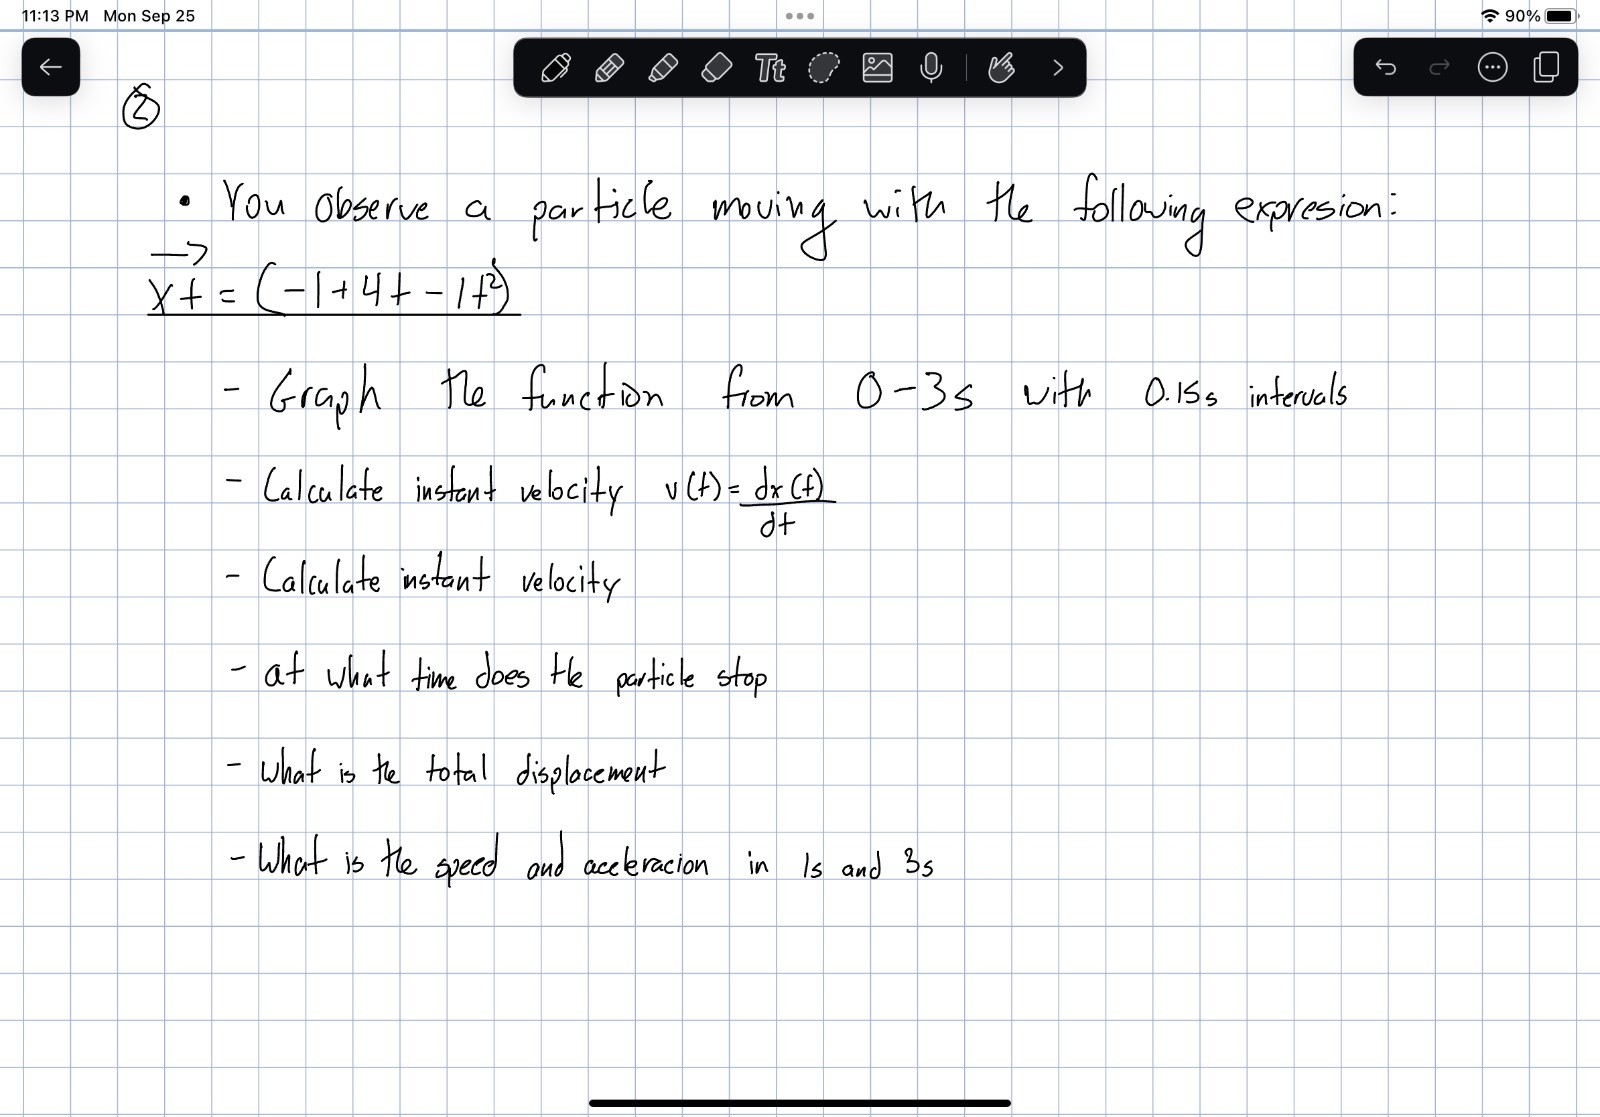 11:13 PM Mon Sep 25
90%
Tt
2
• You observe a particle moving with the following expresion:
xt = (-1+4t-1t²)
- Graph the function from 0-3s with 0.15s intervals
- Calculate instant velocity v(t) = dx(t)
dt
- Calculate instant velocity
- at what time does the particle stop
- What is the total displacement
- What is the speed and aceleracion in 1s and 3s